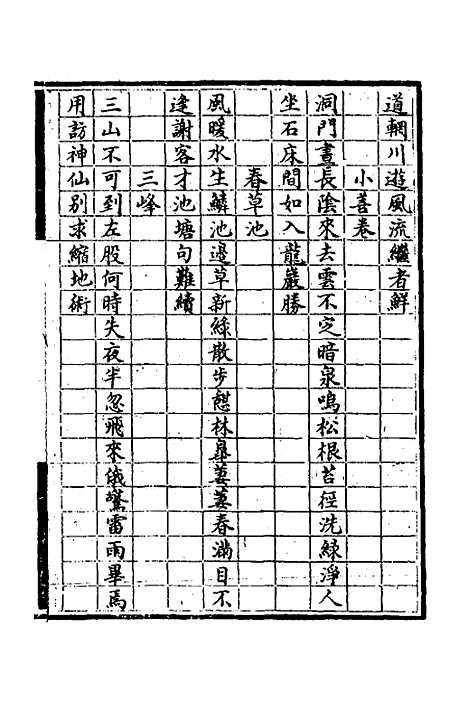 道輞川遊風流繼者鮮
小善卷
洞門晝長陰來去雲不定暗泉鳴松根苔徑洗綠淨人
坐石床間如入龍巖勝
春草池
風暖水生鱗池邊草新綠散步憇林臯萋萋春滿目不
逢謝客才池塘句難續
三峰
三山不可到左股何時失夜半忽飛來俄驚雷雨畢焉
用訪神仙别求縮地術